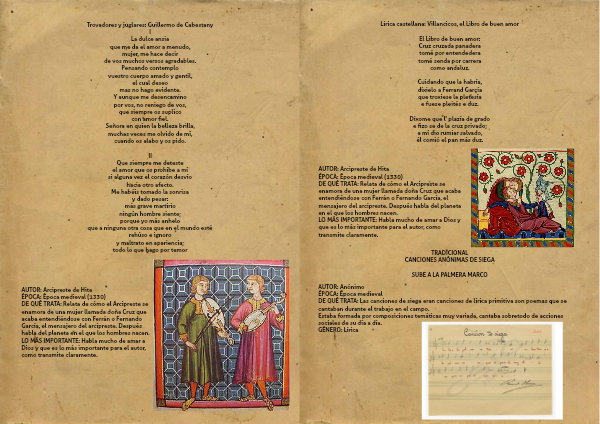 Trovadores y juglares: Guillermo de Cabestany
I
La dulce ansia
que me da el amor a menudo,
mujer, me hace decir
de vos muchos versos agradables.
Pensando contemplo
vuestro cuerpo amado y gentil,
el cual deseo
mas no hago evidente.
Y aunque me desencamino
por vos, no reniego de vos,
que siempre os suplico
con amor fiel.
Señora en quien la belleza brilla,
muchas veces me olvido de mí,
cuando os alabo y os pido.
II
Que siempre me deteste
el amor que os prohíbe a mí
si alguna vez el corazón desvío
hacia otro afecto.
Me habéis tomado la sonrisa
y dado pesar:
más grave martirio
ningún hombre siente;
porque yo más anhelo
que a ninguna otra cosa que en el mundo esté
rehúso e ignoro
y maltrato en apariencia;
todo lo que hago por temor
AUTOR: Arcipreste de Hita
ÉPOCA: Época medieval (1330)
DE QUÉ TRATA: Relata de cómo el Arcipreste se
enamora de una mujer llamada doña Cruz que
acaba entendiéndose con Ferrán o Fernando
García, el menzajero del arcipreste. Después
habla del planeta en el que los hombres nacen.
LO MÁS IMPORTANTE: Habla mucho de amar a
Dios y que es lo más importante para el autor,
como transmite claramente.
Lírica castellana: Villancicos, el Libro de buen amor
El Libro de buen amor:
Cruz cruzada panadera
tomé por entendedera
tomé senda por carrera
como andaluz.
Cuidando que la habría,
díxielo a Ferrand García
que troxiese la pletesía
e fuese pleités e duz.
Díxome quel' plazía de grado
e fizo se de la cruz privado;
a mí dio rumiar salvado,
él comió el pan más duz.
AUTOR: Arcipreste de Hita
ÉPOCA: Época medieval (1330)
DE QUÉ TRATA: Relata de cómo el Arcipreste se
enamora de una mujer llamada doña Cruz que acaba
entendiéndose con Ferrán o Fernando García, el
mensajero del arcipreste. Después habla del planeta
en el que los hombres nacen.
LO MÁS IMPORTANTE: Habla mucho de amar a Dios y
que es lo más importante para el autor, como
transmite claramente.
TRADICIONAL
CANCIONES ANÓNIMAS DE SIEGA
SUBE A LA PALMERA MARCO
AUTOR: Anónimo
ÉPOCA: Época medieval
DE QUÉ TRATA: Las canciones de siega eran canciones de lírica primitiva son poemas que se
cantaban durante el trabajo en el campo.
Estaba formada por composiciones temáticas muy variada, cantaba sobretodo de acciones
sociales de su día a día.
GÉNERO: Lírica
Canción de siega